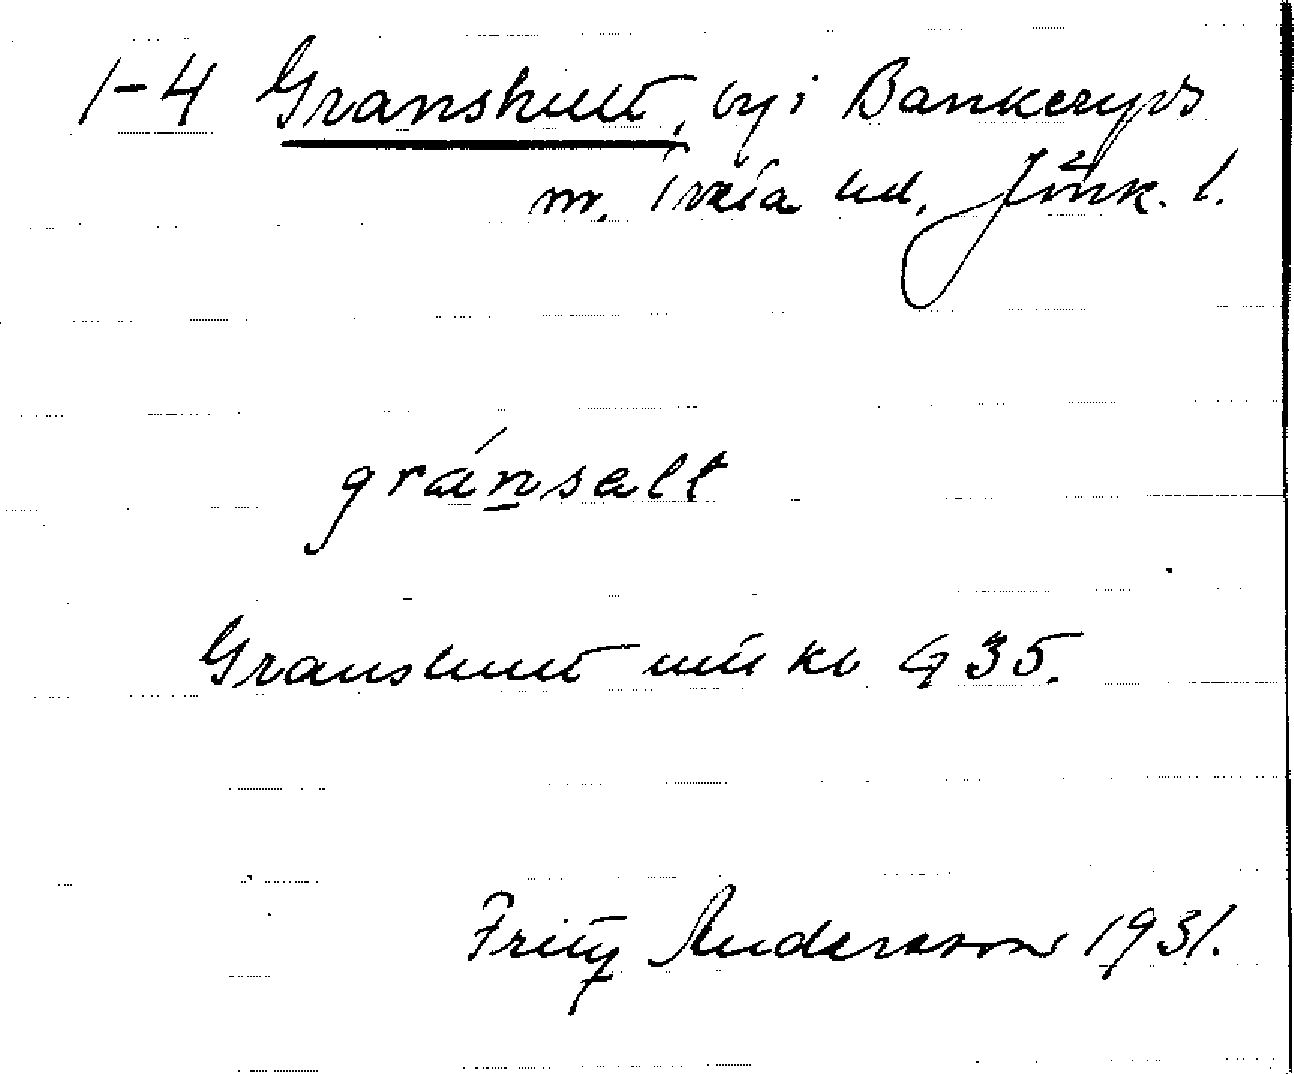 1-4 Granshult, by i Bankeryds
sn. Tveta hd, Jönk. l.
gránsalt
Granshult uti kb G 35.
Fritz Andersson 1931.